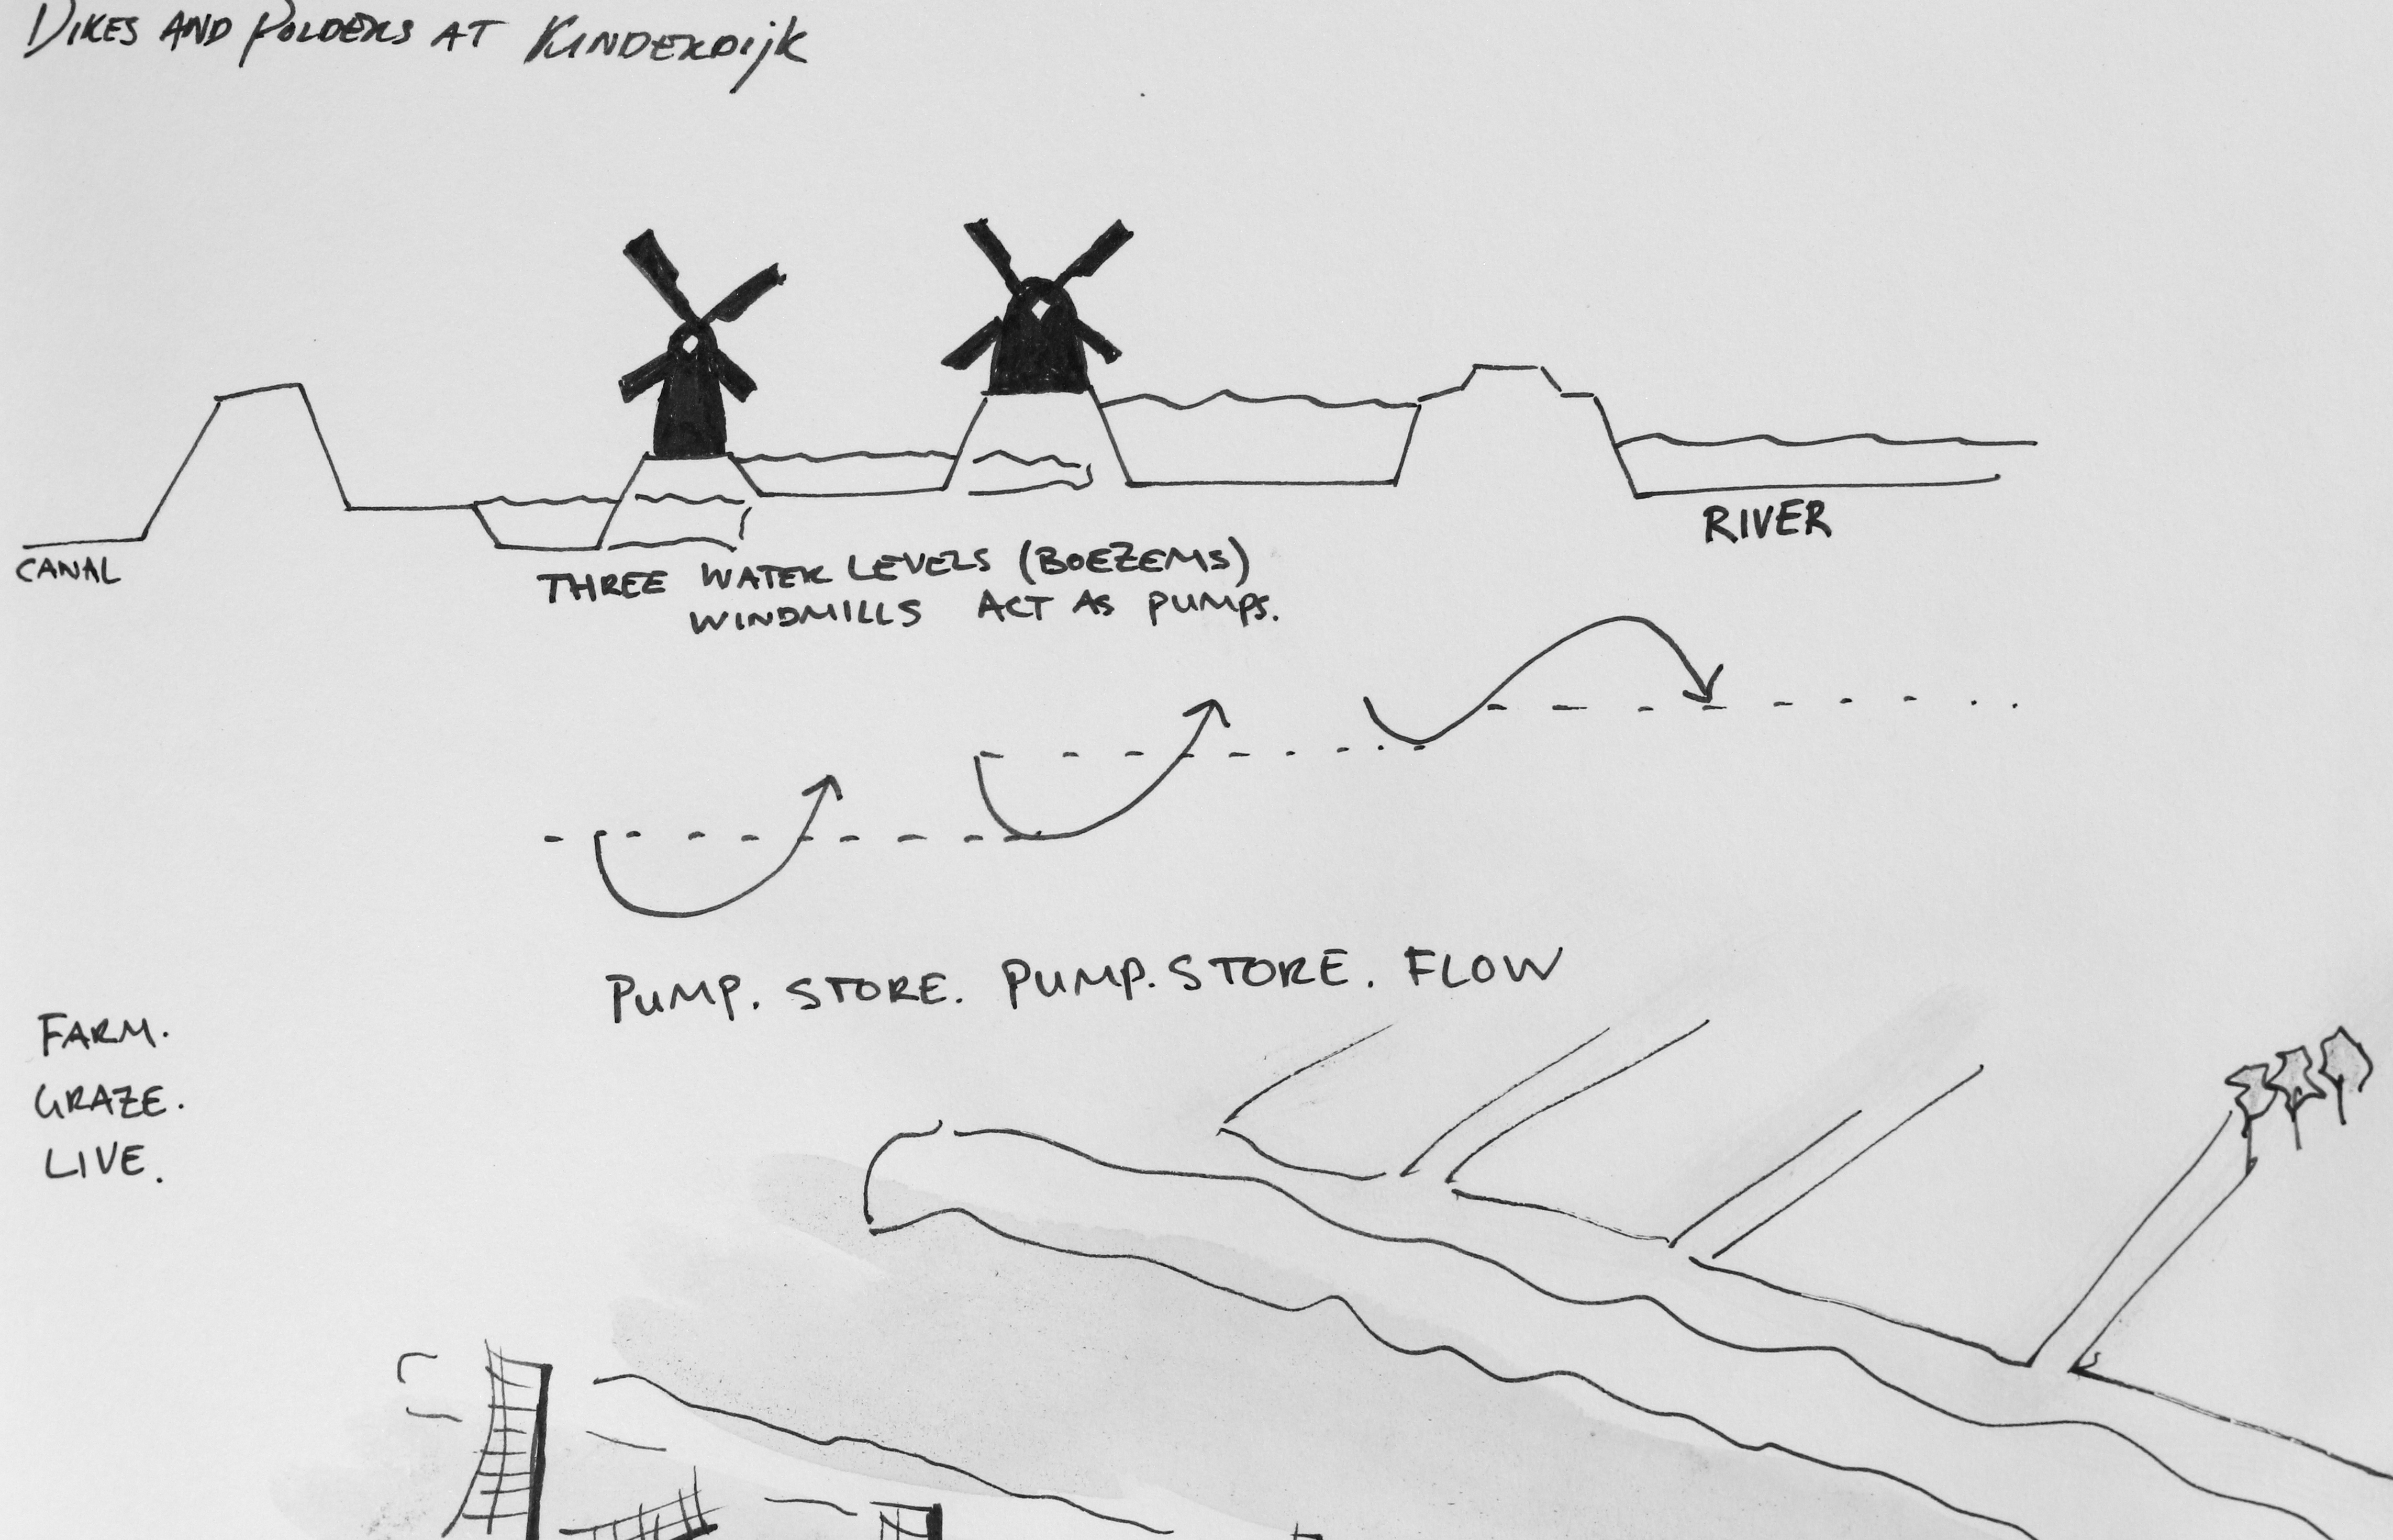 DIKES AND POLDERS AT KINDERDIJK
CANAL
RIVER
THREE WATER LEVELS (BOEZEMS)
WINDMILLS ACT AS PUMPS.
PUMP. STORE. PUMP. STORE. FLOW
FARM.
GRAZE.
LIVE.